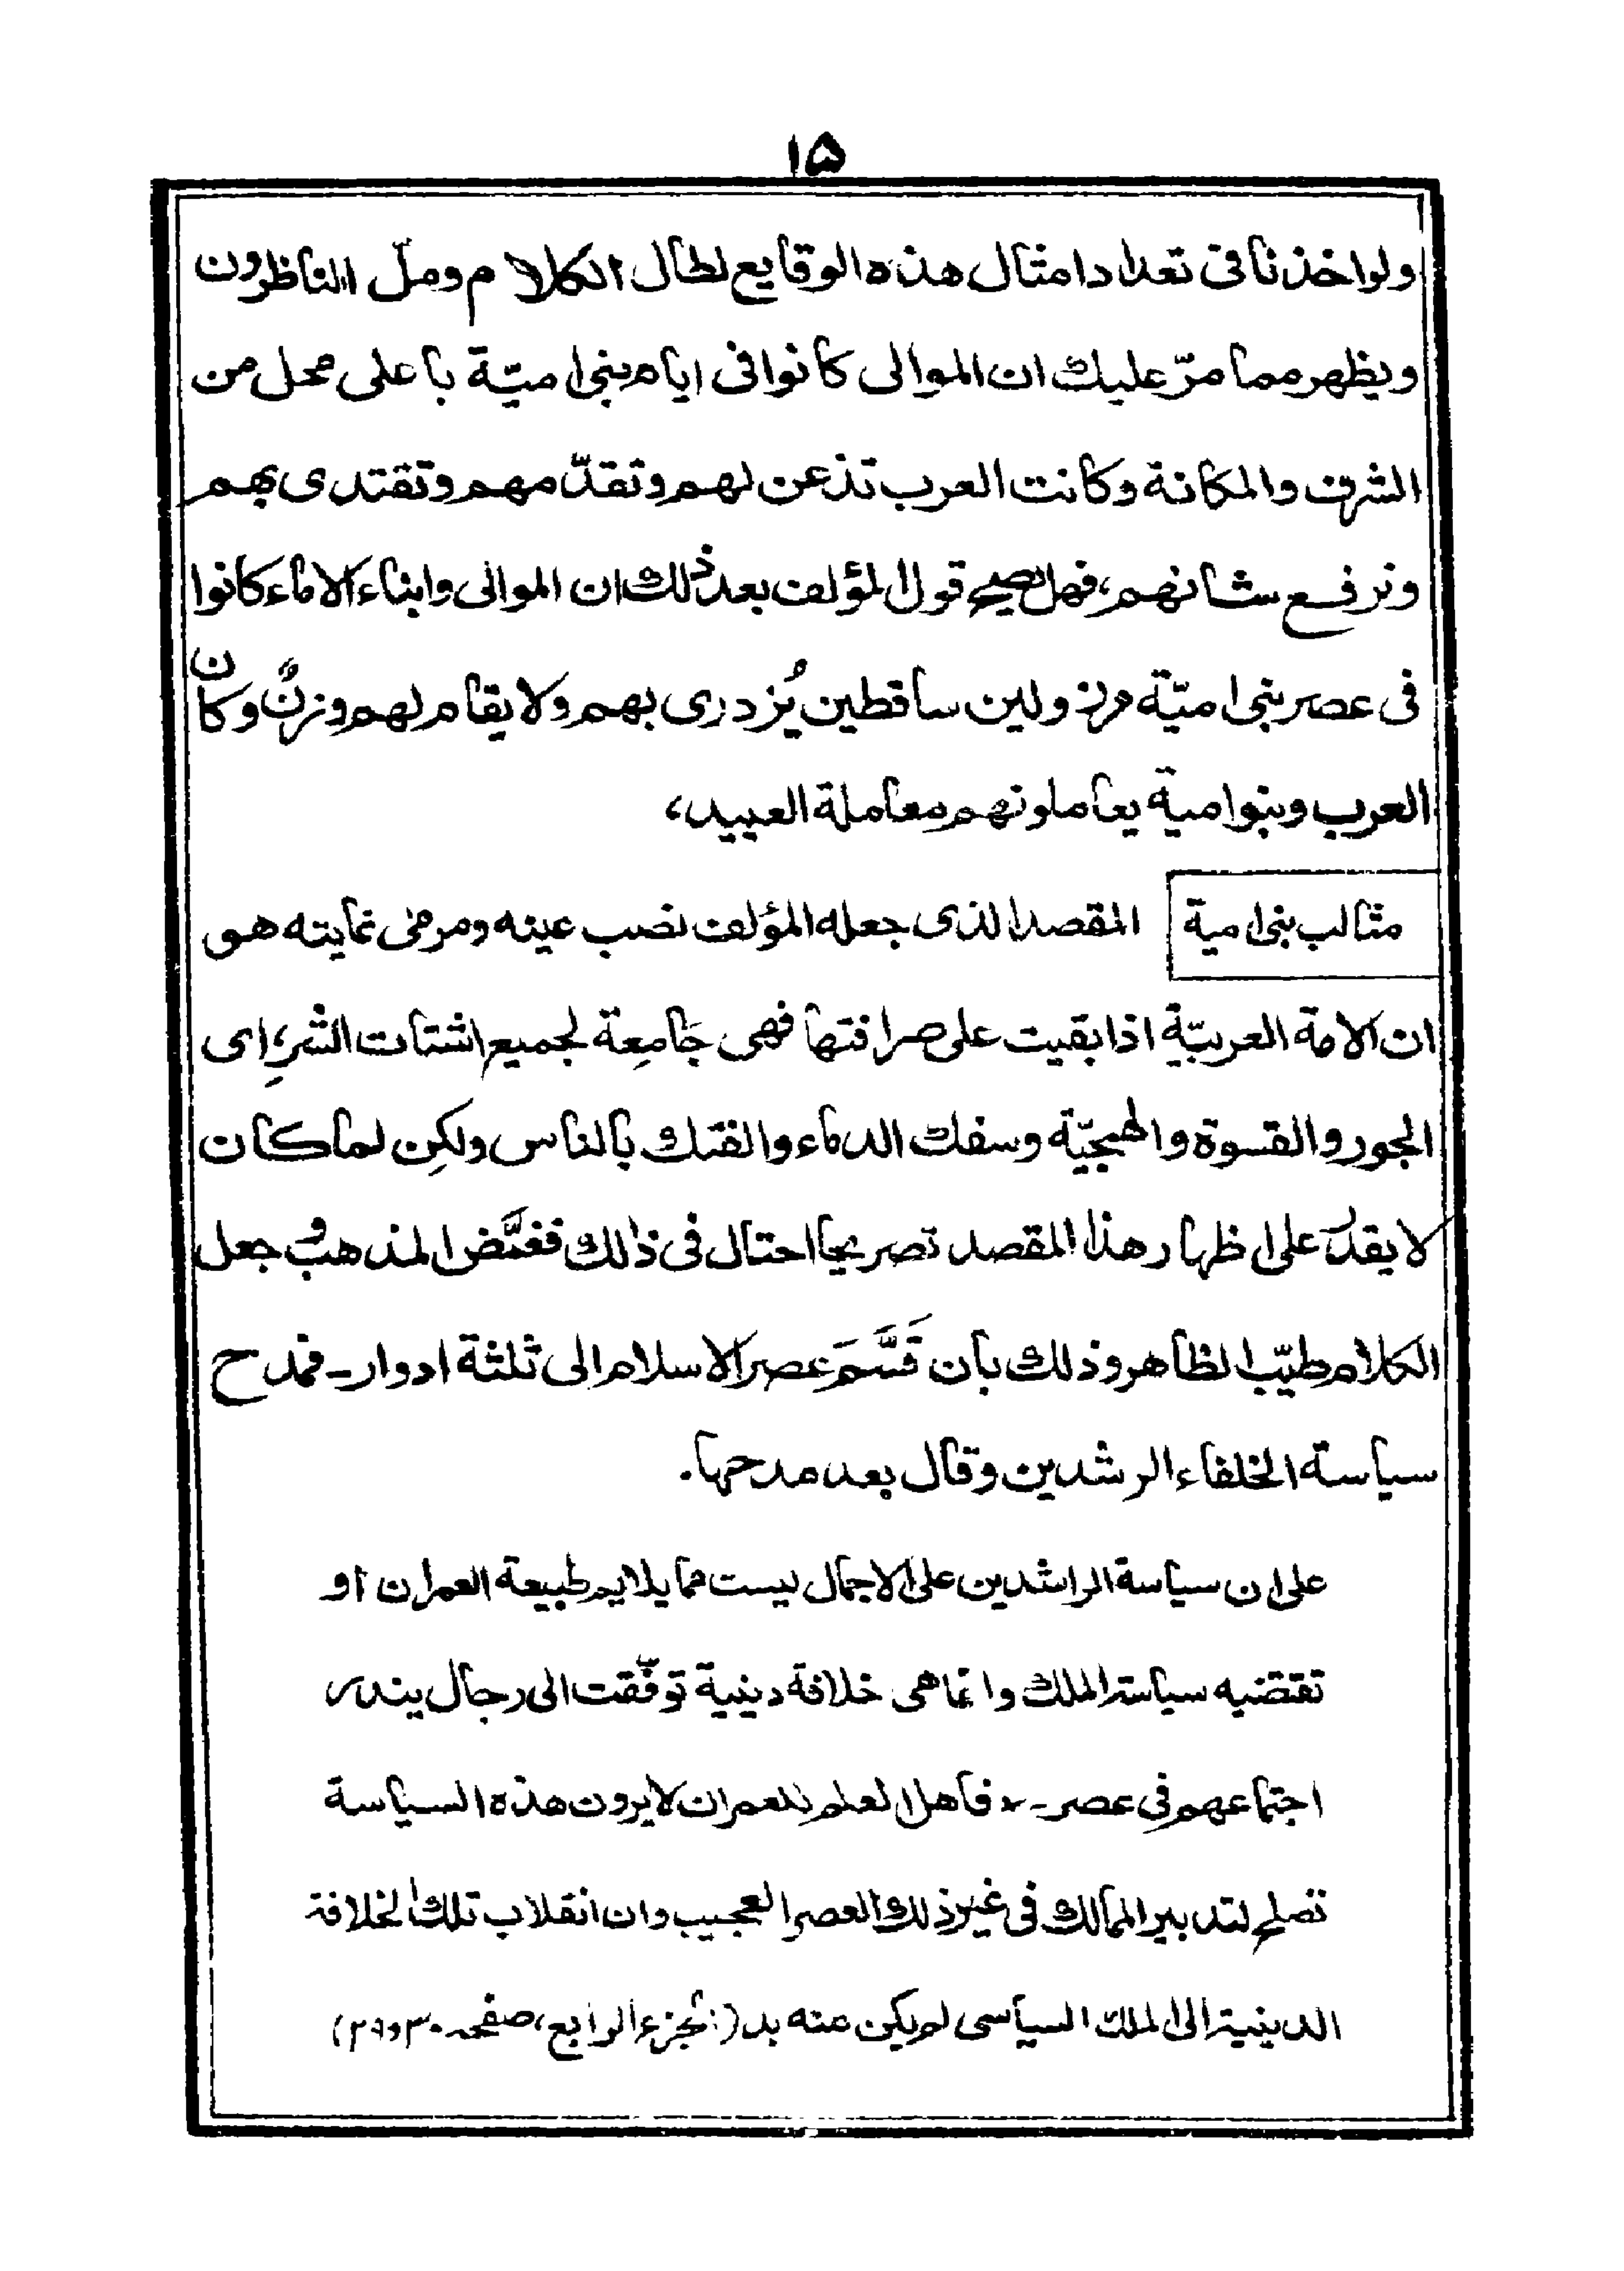 ١۵
ولو اخذنا فى تعداد امثال هذه الوقايع لطال الكلام وملّ الناظرون
ويظهر مما مرّ عليك ان الموالى كانوا فى ايام بنى اميّة باعلى محل من
الشرف والمكانة وكانت العرب تذعن لهم وتقدّمهم وتقتدى بهم
وترفع شانهم، فهل يصح قول المؤلف بعد ذلك ان الموالى وابناء الاماء كانوا
فى عصر بنى اميّة مرذولين ساقطين يُزدرى بهم ولا يقام لهم وزنٌ وكان
العرب وبنوامية يعاملونهم معاملة العبيد،
مثالب بنى امية المقصد الذى جعله المؤلف نصب عينه ومرمى غايته هو
ان الامة العربيّة اذا بقيت على صرافتها فهى جَامِعة لجميع اشتات الشرِ، اى
الجور والقسوة والهمجيّة وسفك الدماء والفتك بالناس ولكِن لما كان
لا يقدر على اظهار هذا المقصد تصريحا احتال فى ذالك فغمَّض المذهب وجعل
الكلام طيّب الظاهر وذلك بأن قَسَّمَ عصر الاسلام الى ثلثة ادوار۔ فمدح
سياسة الخلفاء الرشدين وقال بعد مدحها۔
على ان سياسة الراشدين على الاجمال ليست مما يلايم طبيعة العمران او
تقتضيه سياسة الملك وانما هى خلافة دينية توفّقت الى رجال يندر
اجتماعهم فى عصر۔ فاهل العلم بالعمران لا يرون هذه السياسة
تصلح لتدبير الممالك فى غير ذلك العصر العجيب وان انقلاب تلك الخلافة
الدينية الى الملك السياسى لم يكن منه بد (الجزء الرابع، صفحه ٣٠ و٢٩)